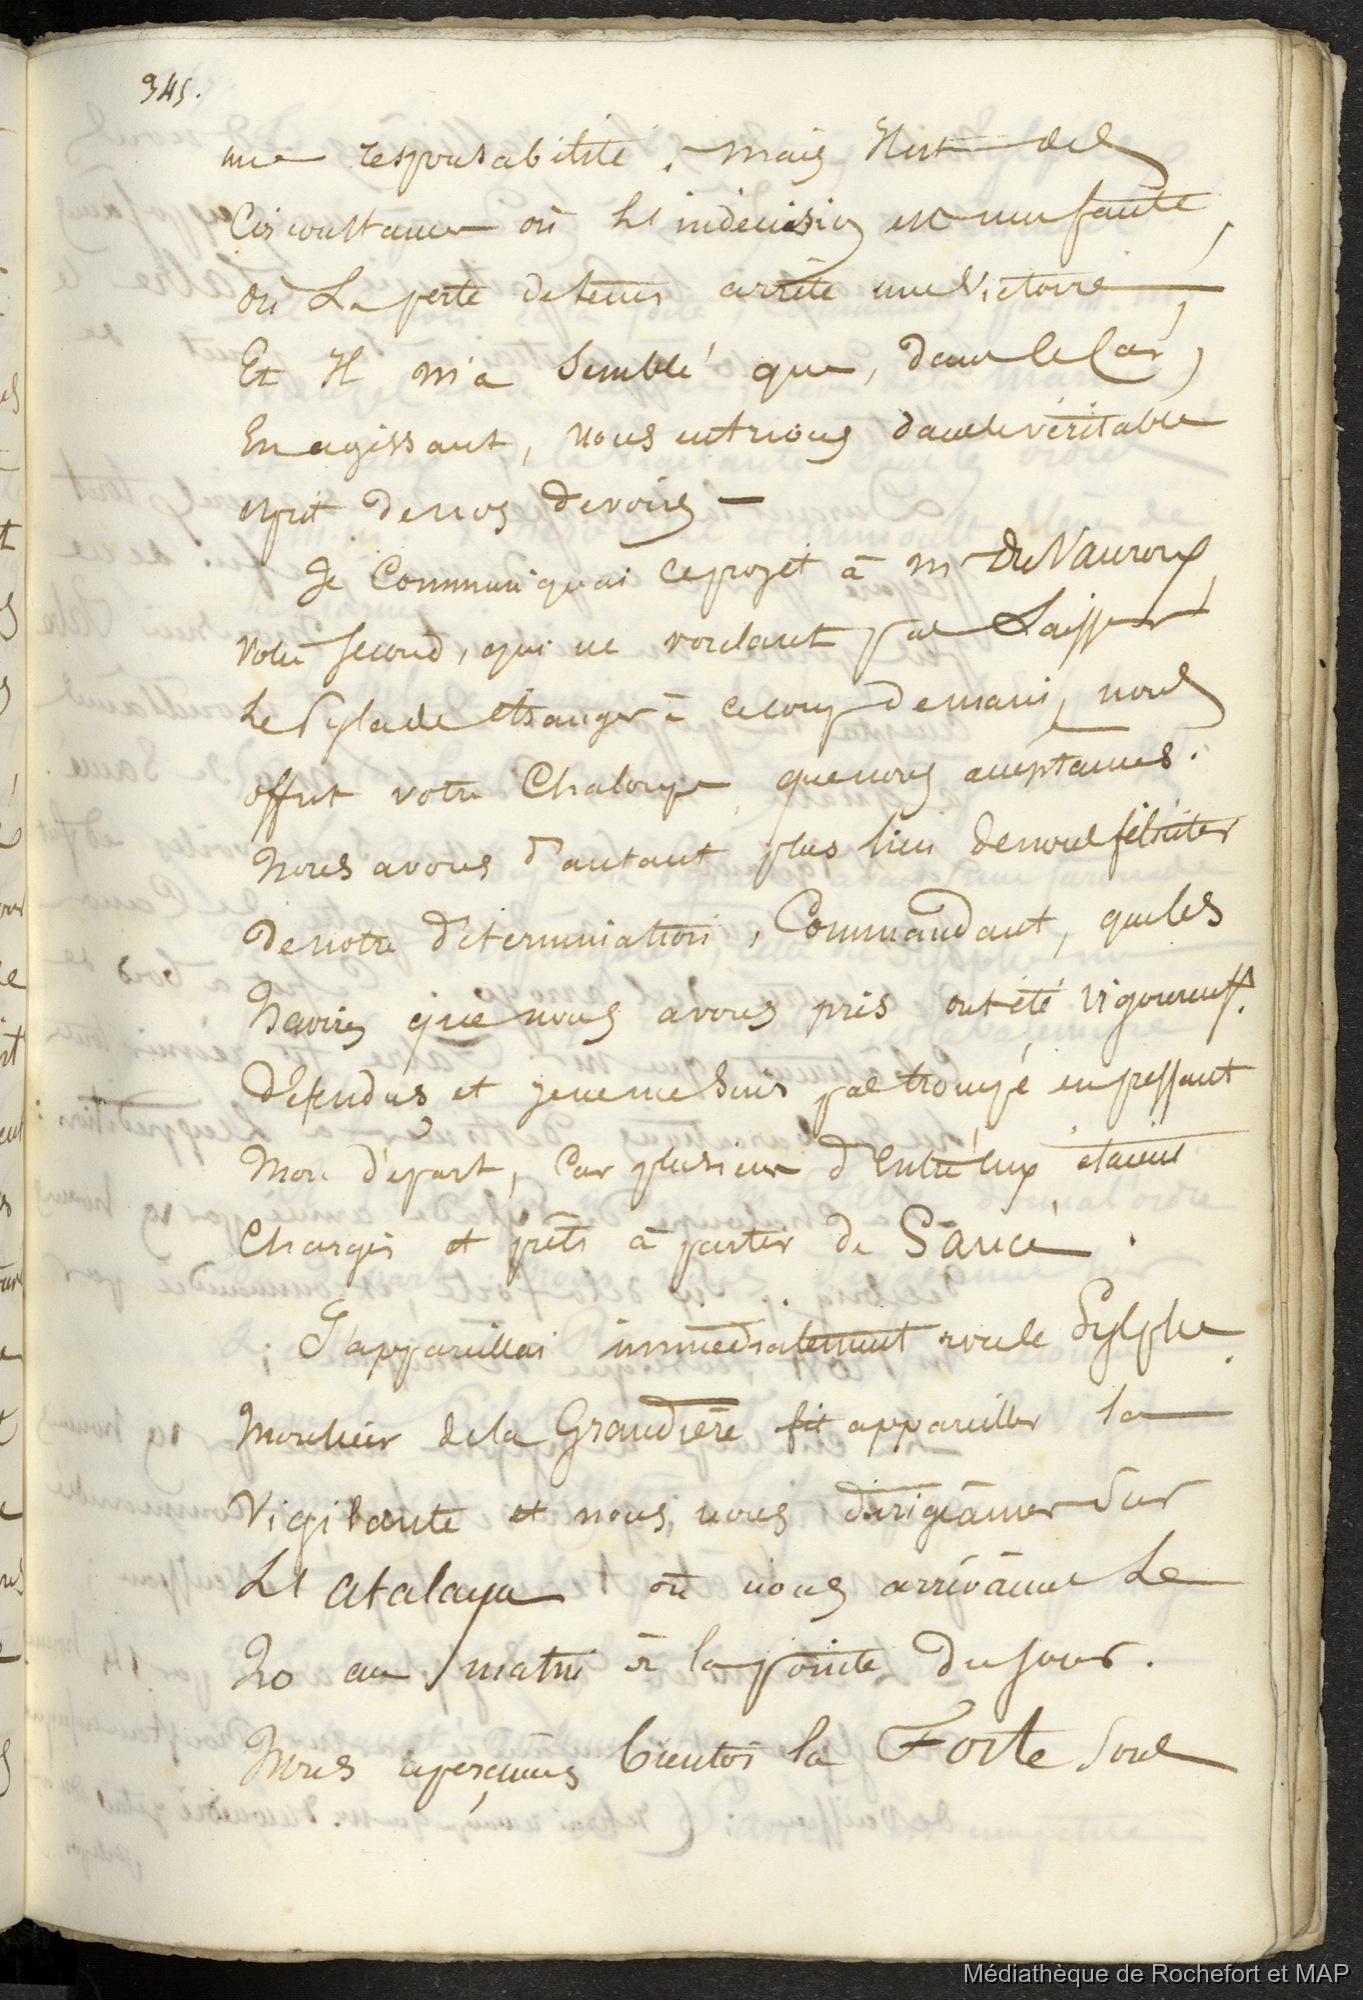 345.
une responsabilité, mais Il est des
Circonstances où L'indécision est une faute,
où La perte de tems arrête une Victoire,
Et Il m'a Semblé que, dans le Cas,
En agissant, nous entrions dans le véritable
esprit de nos devoirs —
Je Communiquai ce projet à mr Du Vauroux,
votre second, qui ne voulant pas Laisser
Le Pylade étranger à ce coup de main, nous
offrit votre Chaloupe que nous acceptames.
nous avons d'autant plus lieu de nous féliciter
de notre détermination, Commandant, que les
navires que nous avons pris ont été vigoureust.
défendus et je ne me suis pas trompé en pressant
Mon départ, Car plusieurs d'Entre'eux étaient
Chargés et prêts à partir de Saucé.
J'appareillai immédiatement avec le Sylphe.
Monsieur de la Grandière fit appareiller la
Vigilante et nous, nous dirigeâmes Sur
L'atalaya où nous arrivâmes Le
20 au matin à la pointe du jour.
Nous aperçumes bientôt la Forte Sous
Médiathèque de Rochefort et MAP